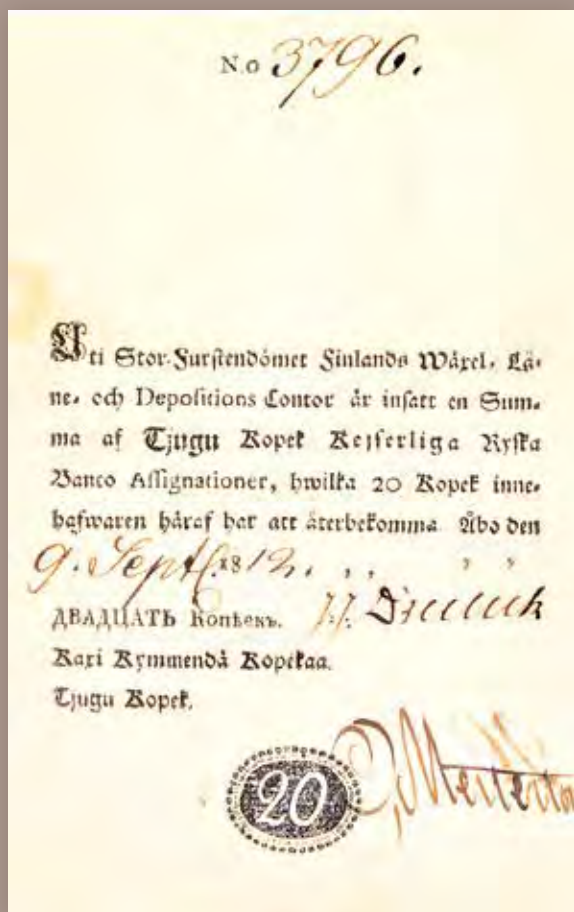 No 3796.
Uti Stor-Furstendömet Finlands Wäxel, Lå-
ne- och Depositions Contor är insatt en Sum-
ma af Tjugu Kopek Kejserliga Ryska
Banco Assignationer, hwilka 20 Kopek inne-
hafwaren häraf har att återbekomma Åbo den
9. Sept. 1812. , , , ,
ДВАДЦАТЬ Копѣекъ.
Kaxi Kymmendä Kopekaa.
Tjugu Kopek.
20